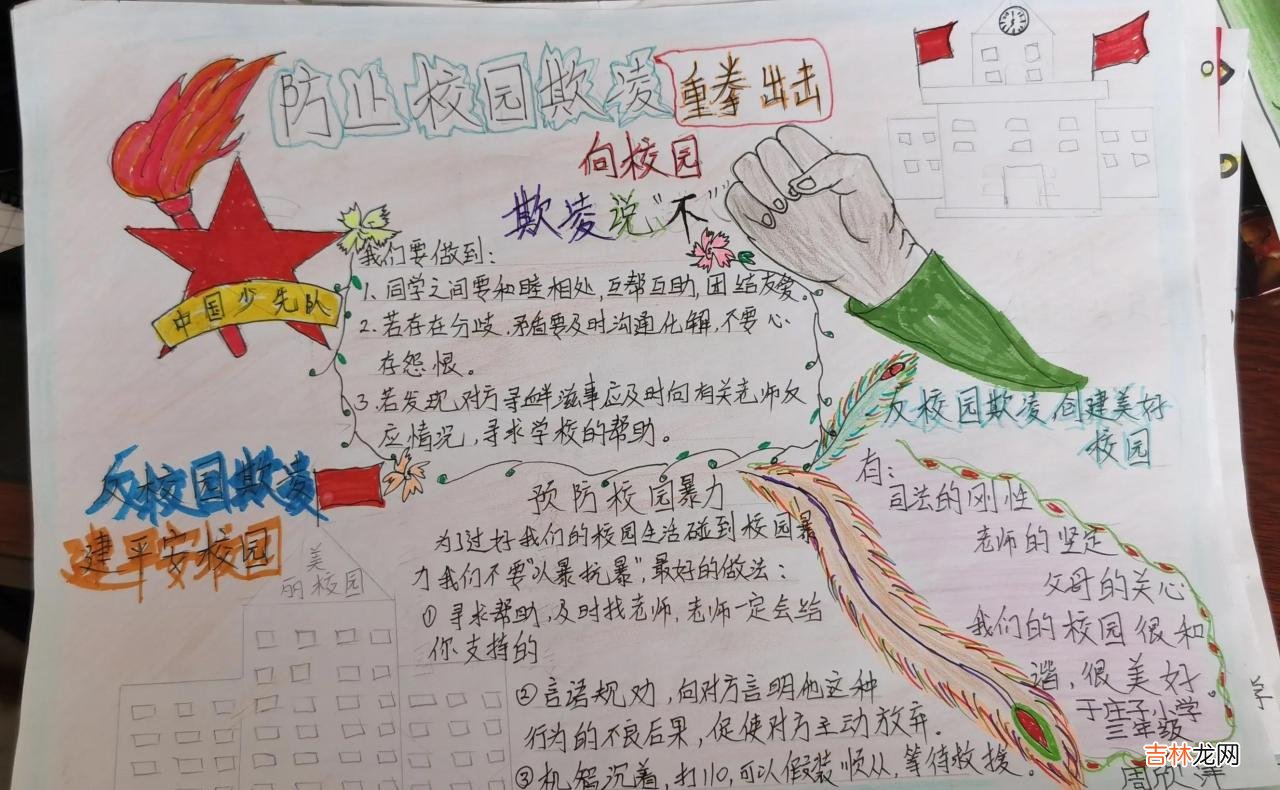 防止校园欺凌
重拳出击
向校园
欺凌说“不”
中国少先队
我们要做到：
1. 同学之间要和睦相处，互帮互助，团结友爱。
2. 若存在分歧，矛盾要及时沟通化解，不要心
存怨恨。
3. 若发现对方寻衅滋事应及时向有关老师反
应情况，寻求学校的帮助。
反校园欺凌
建平安校园
美
丽校园
反校园欺凌，创建美好
校园
预防校园暴力
为了过好我们的校园生活碰到校园暴
力我们不要“以暴抗暴”，最好的做法：
① 寻求帮助，及时找老师，老师一定会给
你支持的
② 言语规劝，向对方言明他这种
行为的不良后果，促使对方主动放弃。
③ 机智沉着，打110，可以假装顺从，等待救援。
有：
司法的刚性
老师的坚定
父母的关心
我们的校园很和
谐，很美好。
于庄子小学
三年级
周欣
学
吉林龙网